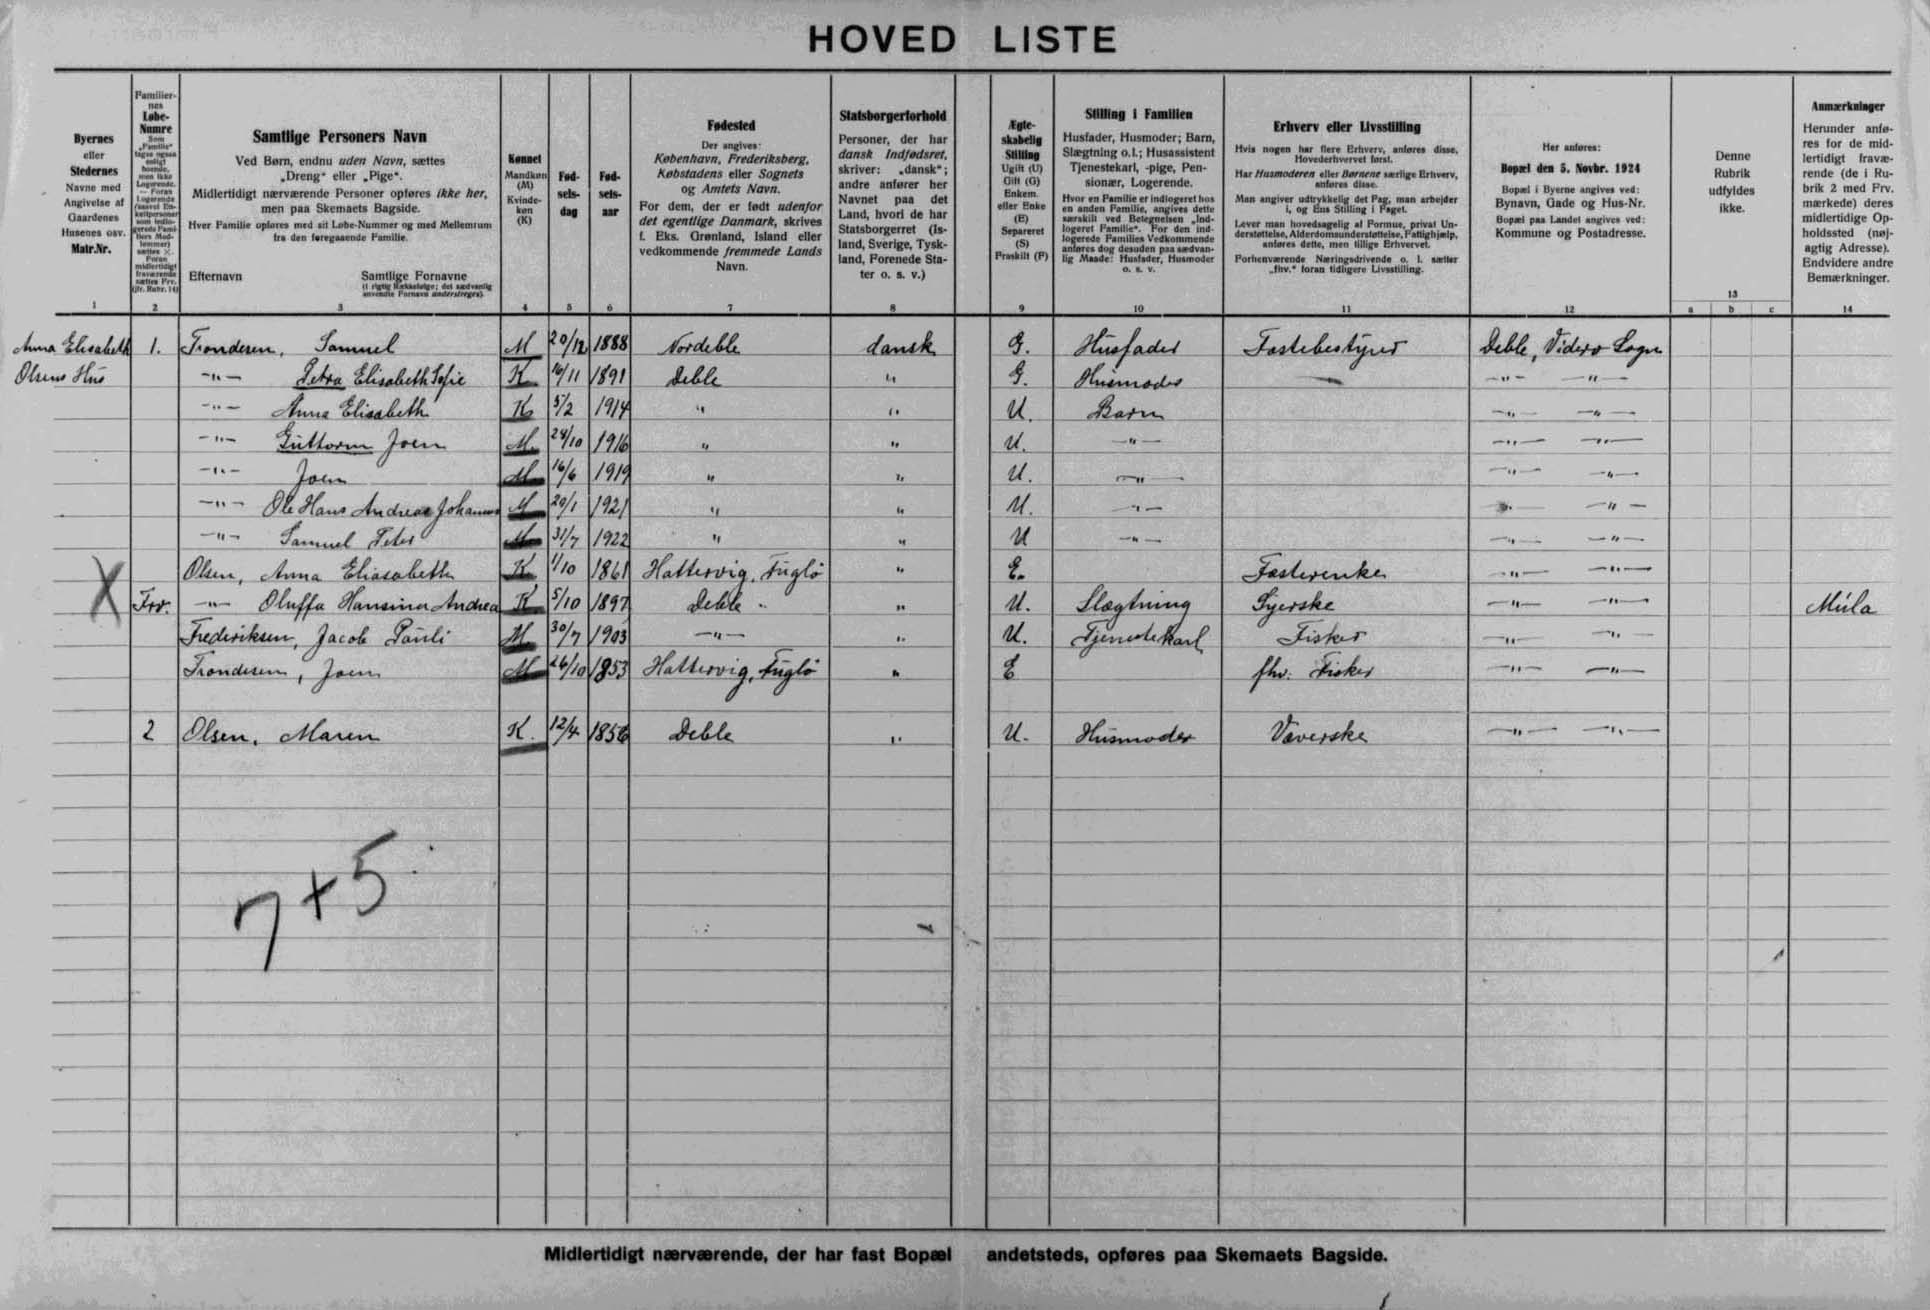 HOVED LISTE
Byernes
eller
Stedernes
Navne med
Angivelse af
Gaardenes
Husenes osv.
Matr.Nr.
1
Familier-
nes
Løbe-
Numre
Som
„Familie“
tages ogsaa
enligt
boende,
men ikke
Logerende.
— Foran
Logerende
(saavel En-
keltpersoner
som indlo-
gerede Fami-
liers Med-
lemmer)
sættes X.
Foran
midlertidigt
fraværende
sættes Frv.
(jfr. Rubr. 14)
2
Samtlige Personers Navn
Ved Børn, endnu uden Navn, sættes
„Dreng“ eller „Pige“.
Midlertidigt nærværende Personer opføres ikke her,
men paa Skemaets Bagside.
Hver Familie opføres med sit Løbe-Nummer og med Mellemrum
fra den foregaaende Familie.
Efternavn
Samtlige Fornavne
(i rigtig Rækkefølge; det sædvanlig
anvendte Fornavn understreges).
3
Kønnet
Mandkøn
(M)
Kvinde-
køn
(K)
4
Fød-
sels-
dag
5
Fød-
sels-
aar
6
Fødested
Der angives:
København, Frederiksberg,
Købstadens eller Sognets
og Amtets Navn.
For dem, der er født udenfor
det egentlige Danmark, skrives
f. Eks. Grønland, Island eller
vedkommende fremmede Lands
Navn.
7
Statsborgerforhold
Personer, der har
dansk Indfødsret,
skriver: „dansk“;
andre anfører her
Navnet paa det
Land, hvori de har
Statsborgerret (Is-
land, Sverige, Tysk-
land, Forenede Sta-
ter o. s. v.)
8
Ægte-
skabelig
Stilling
Ugift (U)
Gift (G)
Enkem.
eller Enke
(E)
Separeret
(S)
Fraskilt (F)
9
Stilling i Familien
Husfader, Husmoder; Barn,
Slægtning o.l.; Husassistent
Tjenestekarl, -pige, Pen-
sionær, Logerende.
Hvor en Familie er indlogeret hos
en anden Familie, angives dette
særskilt ved Betegnelsen „Ind-
logeret Familie“. For den ind-
logerede Families Vedkommende
anføres dog desuden paa sædvan-
lig Maade: Husfader, Husmoder
o. s. v.
10
Erhverv eller Livsstilling
Hvis nogen har flere Erhverv, anføres disse,
Hovederhvervet først.
Har Husmoderen eller Børnene særlige Erhverv,
anføres disse.
Man angiver udtrykkelig det Fag, man arbejder
i, og Ens Stilling i Faget.
Lever man hovedsagelig af Formue, privat Un-
derstøttelse, Alderdomsunderstøttelse, Fattighjælp,
anføres dette, men tillige Erhvervet.
Forhenværende Næringsdrivende o. l. sætter
„fhv.“ foran tidligere Livsstilling.
11
Her anføres:
Bopæl den 5. Novbr. 1924
Bopæl i Byerne angives ved:
Bynavn, Gade og Hus-Nr.
Bopæl paa Landet angives ved:
Kommune og Postadresse.
12
Denne
Rubrik
udfyldes
ikke.
13
a b c
Anmærkninger
Herunder anfø-
res for de mid-
lertidigt fravæ-
rende (de i Ru-
brik 2 med Frv.
mærkede) deres
midlertidige Op-
holdssted (nøj-
agtig Adresse).
Endvidere andre
Bemærkninger.
14
Anna Elisabeth 1. Trondesen, Samuel M 20/12 1888 Nordeble dansk G. Husfader Fæstebestyrer Deble, Viderø Sogn
Olsens Hus -"- Petra Elisabeth Sofie K 16/11 1891 Deble " G. Husmoder — -"- -"-
-"- Anna Elisabeth K 5/2 1914 " " U. Barn -"- -"-
-"- Guttorm Joen M 24/10 1916 " " U. -"- -"- -"-
-"- Joen M 16/6 1919 " " U. -"- -"- -"-
-"- Ole Hans Andreas Johannes M 20/1 1921 " " U. -"- -"-
-"- Samuel Peter M 31/7 1922 " " U -"- -"- -"-
Olsen, Anna Eliasabeth K 1/10 1861 Hattervig, Fuglø " E. Fæsterenke -"- -"-
X Frv. -"- Oluffa Hansina Andrea K 5/10 1897 Deble " " U. Slægtning Syerske -"- -"- Múla
Frederiksen, Jacob Pauli M 30/7 1903 -"- " U. Tjenestekarl Fisker -"- -"-
Trondesen, Joen M 26/10 1853 Hattervig, Fuglø " E fhv. Fisker -"- -"-
2 Olsen, Maren K. 12/4 1856 Deble " U. Husmoder Væverske -"- -"-
7+5
Midlertidigt nærværende, der har fast Bopæl andetsteds, opføres paa Skemaets Bagside.